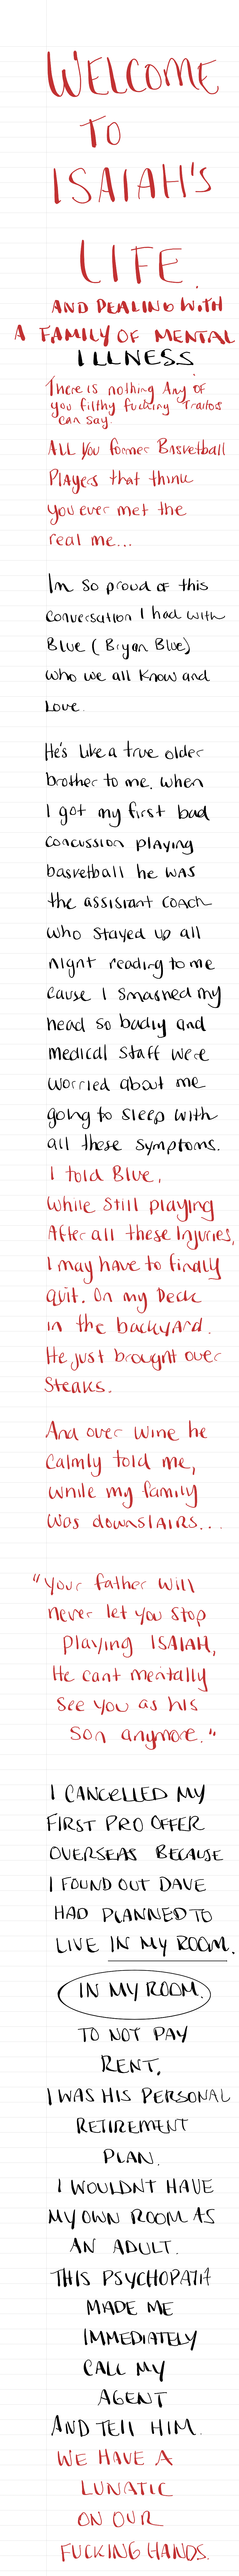 WELCOME
TO
ISAIAH'S
LIFE.
AND DEALING WITH
A FAMILY OF MENTAL
ILLNESS
There is nothing Any of
you filthy fucking Traitors
can say.
ALL You former Basketball
Players that think
you ever met the
real me...
Im so proud of this
conversation I had with
Blue (Bryan Blue)
who we all know and
Love.
He's like a true older
brother to me. when
I got my first bad
concussion playing
basketball he was
the assistant coach
who stayed up all
night reading to me
cause I smashed my
head so badly and
medical staff were
worried about me
going to sleep with
all these symptoms.
I told Blue,
while still playing
After all these Injuries,
I may have to finally
quit. On my Deck
in the backyard.
He just brought over
Steaks.
And over wine he
calmly told me,
while my family
was downstairs...
"Your father will
never let you stop
playing ISAIAH,
He cant mentally
see you as his
son anymore."
I CANCELLED MY
FIRST PRO OFFER
OVERSEAS BECAUSE
I FOUND OUT DAVE
HAD PLANNED TO
LIVE IN MY ROOM.
IN MY ROOM.
TO NOT PAY
RENT.
I WAS HIS PERSONAL
RETIREMENT
PLAN.
I WOULDNT HAVE
MY OWN ROOM AS
AN ADULT.
THIS PSYCHOPATH
MADE ME
IMMEDIATELY
CALL MY
AGENT
AND TELL HIM.
WE HAVE A
LUNATIC
ON OUR
FUCKING HANDS.